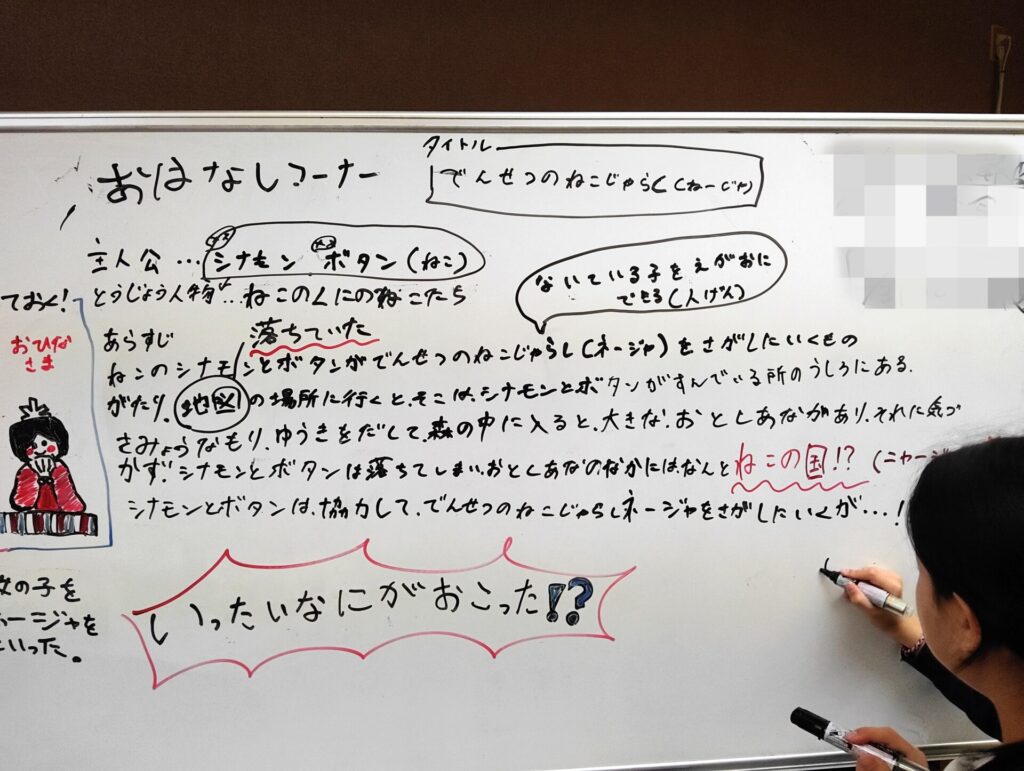 おはなしコーナー
タイトル
でんせつのねこじゃらし(ねーじゃ)
主人公…シナモン ボタン(ねこ)
とうじょう人物…ねこのくにのねこたち
ないている子をえがおに
できる(人げん)
ておく!
おひな
さま
あらすじ
落ちていた
ねこのシナモンとボタンがでんせつのねこじゃらし(ネージャ)をさがしたいくもの
がたり.地図の場所に行くと、そこは、シナモンとボタンがすんでいる所のうしろにある.
さみょうなもり.ゆうきをだして、森の中に入ると、大きな!おとしあながあり.それに気づ
かず!シナモンとボタンは落ちてしまい.おとしあなのなかには、なんとねこの国!?(ニャージ
シナモンとボタンは、協力して、でんせつのねこじゃらしネージャをさがしたいくが…!
いったいなにがおこった!?
の子を
ージャを
いった。